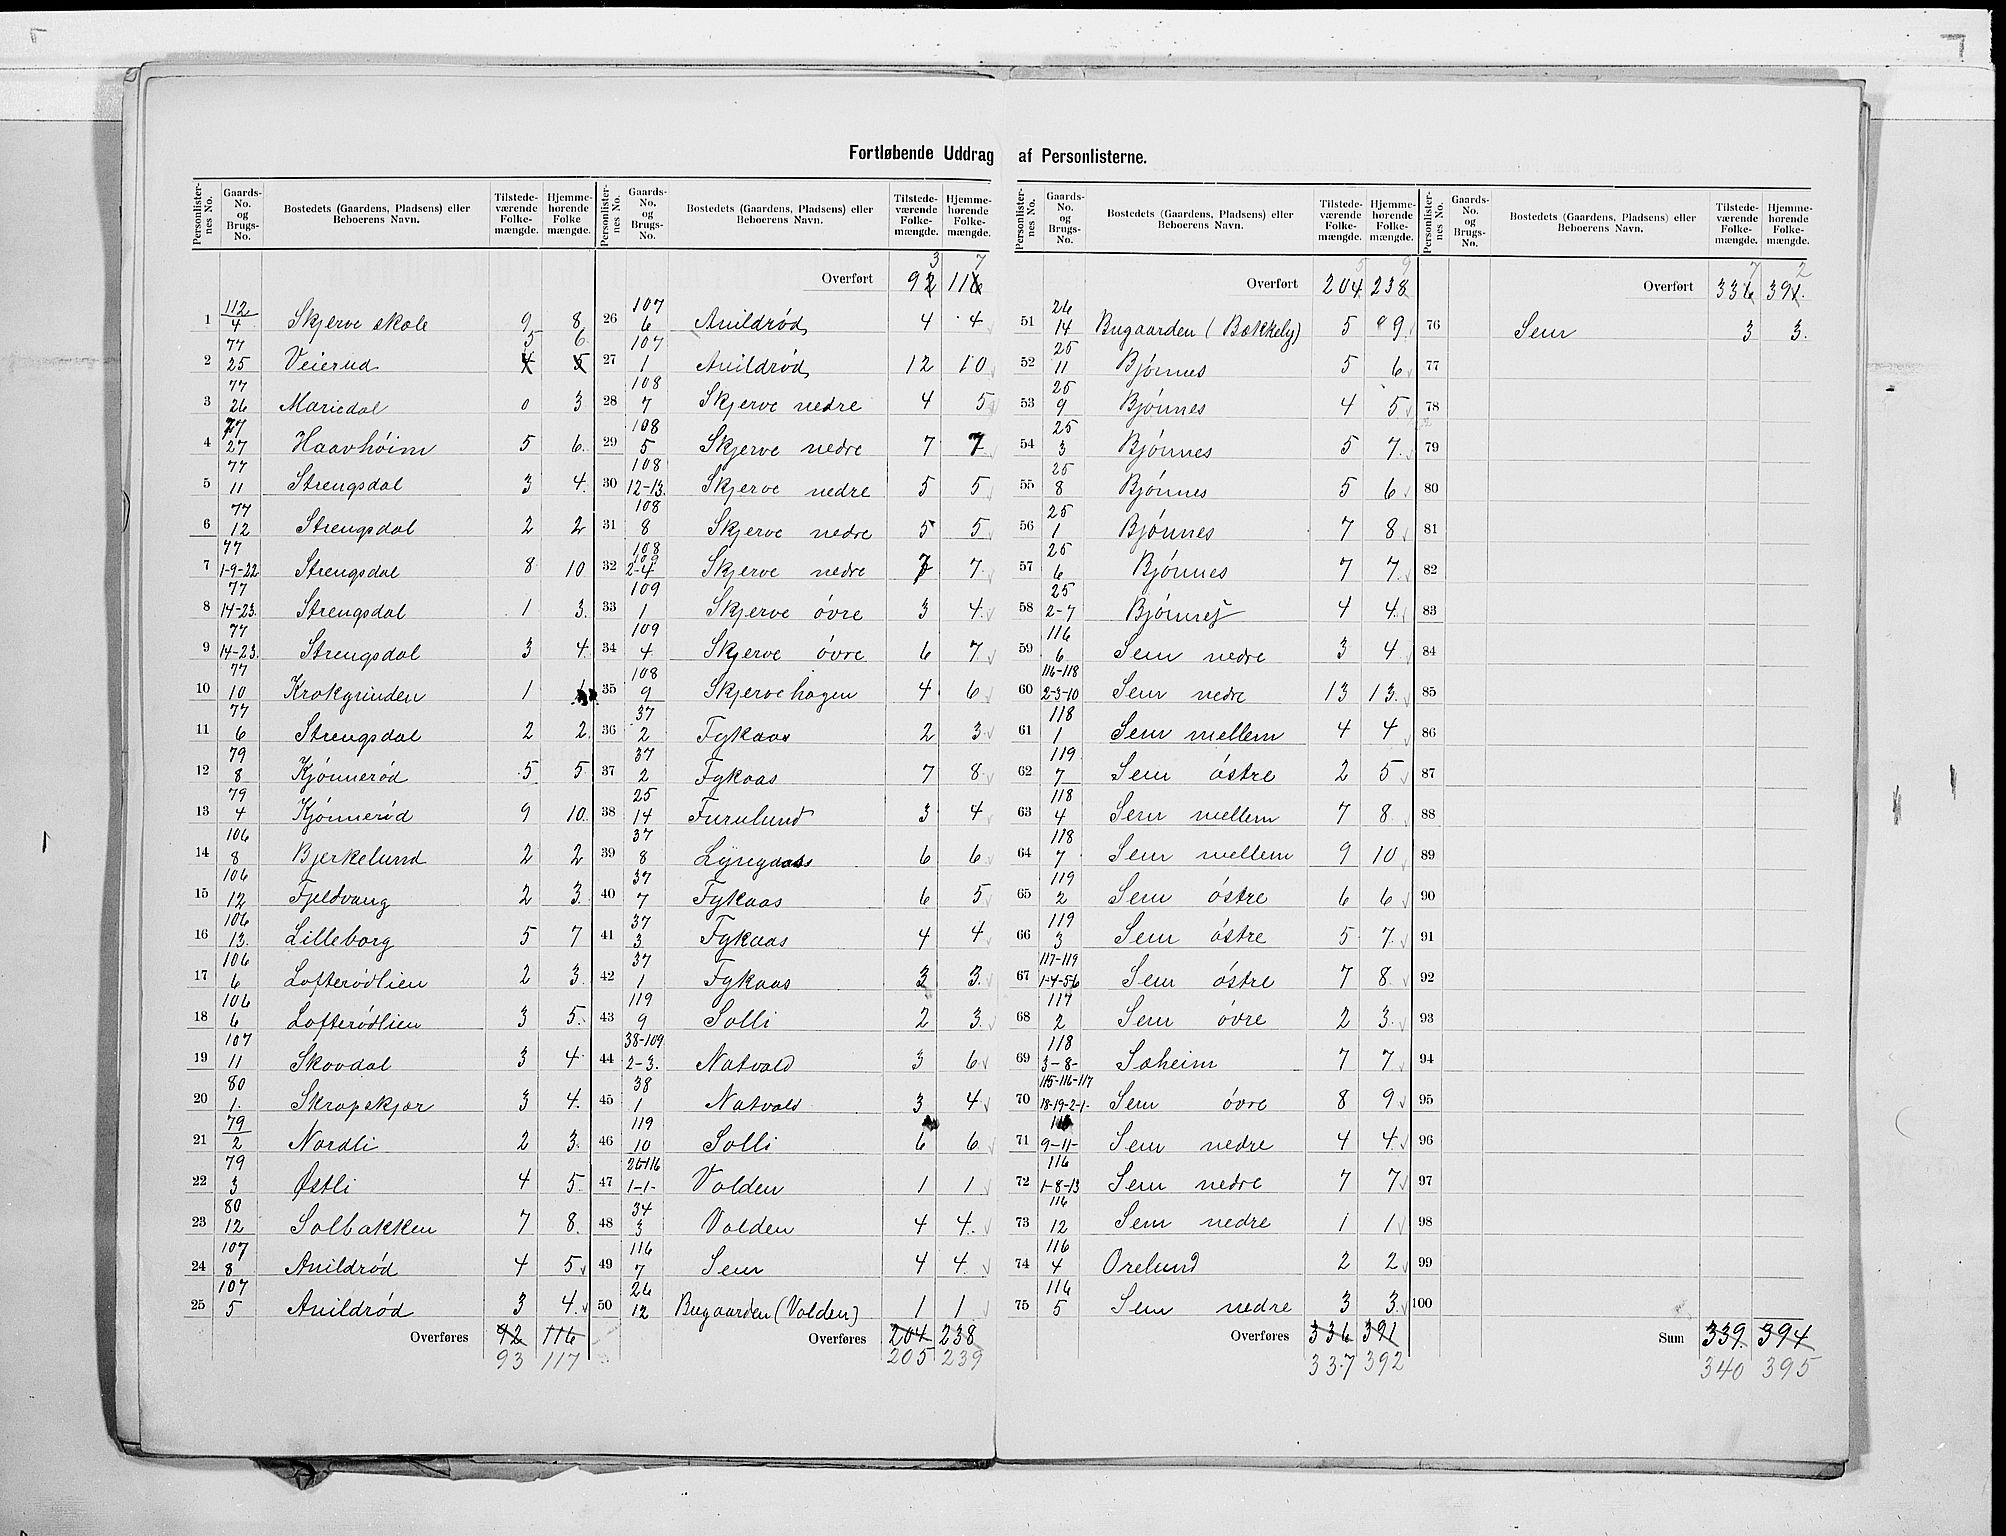 Fortløbende Uddrag af Personlisterne.
Personlister-nes No. | Gaards-No. og Brugs-No. | Bostedets (Gaardens, Pladsens) eller Beboerens Navn. | Tilstede-værende Folke-mængde. | Hjemme-hørende Folke mængde.
1 | 112/4 | Skjerve skole | 9 | 8
2 | 77/25 | Veierud | 4 5 | 5 6
3 | 77/26 | Mariedal | 0 | 3
4 | 77/27 | Haavhøim | 5 | 6.
5 | 77/11 | Strengsdal | 3 | 4.
6 | 77/12 | Strengsdal | 2 | 2
7 | 77/1-9-22 | Strengsdal | 8 | 10
8 | 77/14-23. | Strengsdal | 1 | 3.
9 | 77/14-23. | Strengsdal | 3 | 4.
10 | 77/10 | Krokgrinden | 1
11 | 77/6 | Strengsdal | 2 | 2.
12 | 79/8 | Kjønnerød | 5 | 5
13 | 79/4 | Kjønnerød | 9 | 10.
14 | 106/8 | Bjerkelund | 2 | 2
15 | 106/12 | Fjeldvang | 2 | 3.
16 | 106/13. | Lilleborg | 5 | 7
17 | 106/6 | Lofterødlien | 2 | 3.
18 | 106/6 | Lofterødlien | 3 | 5.
19 | 107/11 | Skovdal | 3 | 4
20 | 80/1. | Skrapskjær | 3 | 4.
21 | 79/2 | Nordli | 2 | 3.
22 | 79/3 | Østli | 4 | 5.
23 | 80/12 | Solbakken | 7 | 8.
24 | 107/8 | Anildrød | 4 | 5
25 | 107/5 | Anildrød | 3 | 4.
Overføres 92 116
93 117
Personlister-nes No. | Gaards-No. og Brugs-No. | Bostedets (Gaardens, Pladsens) eller Beboerens Navn. | Tilstede-værende Folke-mængde. | Hjemme-hørende Folke-mængde.
3 7
Overført 92 116
26 | 107/6 | Anildrød | 4 | 4
27 | 107/1 | Anildrød | 12 | 10
28 | 108/7 | Skjerve nedre | 4 | 5
29 | 108/5 | Skjerve nedre | 7 | 7
30 | 108/12-13. | Skjerve nedre | 5 | 5
31 | 108/8 | Skjerve nedre | 5 | 5
32 | 108 109/2-4 | Skjerve nedre | 7 | 7.
33 | 109/1 | Skjerve øvre | 3 | 4.
34 | 109/4 | Skjerve øvre | 6 | 7
35 | 108/9 | Skjervehagen | 4 | 6
36 | 37/2 | Fykaas | 2 | 3.
37 | 37/2 | Fykaas | 7 | 8
38 | 25/14 | Furulund | 3 | 4
39 | 37/8 | Lyngaas | 6 | 6
40 | 37/7 | Fykaas | 6 | 5
41 | 37/3 | Fykaas | 4 | 4
42 | 37/1 | Fykaas | 3 | 3.
43 | 119/9 | Solli | 2 | 3
44 | 38-109/2-3. | Natvald | 3 | 6
45 | 38/1 | Natvald | 3 | 4
46 | 119/10 | Solli | 6 | 6
47 | 26-116/1-1- | Volden | 1 | 1
48 | 34/3 | Volden | 4 | 4.
49 | 116/7 | Sem | 4 | 4.
50 | 26/12 | Bugaarden (Volden) | 1 | 1
Overføres 204 238
205 239
Personlister-nes No. | Gaards-No. og Brugs-No. | Bostedets (Gaardens, Pladsens) eller Beboerens Navn. | Tilstede-værende Folke-mængde. | Hjemme-hørende Folke-mængde.
5 9
Overført 204 238
51 | 26/14 | Bugaarden (Bækkely) | 5 | 9.
52 | 25/11 | Bjønnes | 5 | 6
53 | 25/9 | Bjønnes | 4 | 5
54 | 25/3 | Bjønnes | 5 | 7.
55 | 25/8 | Bjønnes | 5 | 6
56 | 25/1 | Bjønnes | 7 | 8
57 | 25/6 | Bjønnes | 7 | 7.
58 | 25/2-7 | Bjønnes | 4 | 4.
59 | 116/6 | Sem nedre | 3 | 4
60 | 116-118/2-3-10 | Sem nedre | 13 | 13.
61 | 118/1 | Sem mellem | 4 | 4
62 | 119/7 | Sem østre | 2 | 5
63 | 118/4 | Sem mellem | 7 | 8.
64 | 118/7 | Sem mellem | 9 | 10
65 | 119/2 | Sem østre | 6 | 6
66 | 119/3 | Sem østre | 5 | 7.
67 | 117-119/1-4-5-6 | Sem østre | 7 | 8.
68 | 117/2 | Sem øvre | 2 | 3.
69 | 118/3-8- | Saheim | 7 | 7
70 | 115-116-117/18-19-2-1- | Sem øvre | 8 | 9
71 | 9-11- | Sem nedre | 4 | 4.
72 | 116/1-8-13 | Sem nedre | 7 | 7
73 | 116/12 | Sem nedre | 1 | 1
74 | 116/4 | Orelund | 2 | 2
75 | 116/5 | Sem nedre | 3 | 3.
Overføres 336 391
337 392
Personlister-nes No. | Gaards-No. og Brugs-No. | Bostedets (Gaardens, Pladsens) eller Beboerens Navn. | Tilstede-værende Folke-mængde. | Hjemme-hørende Folke-mængde.
7 2
Overført 336 391.
76 | Sem | 3 | 3.
77
78
79
80
81
82
83
84
85
86
87
88
89
90
91
92
93
94
95
96
97
98
99
100
Sum 339. 394
340 395